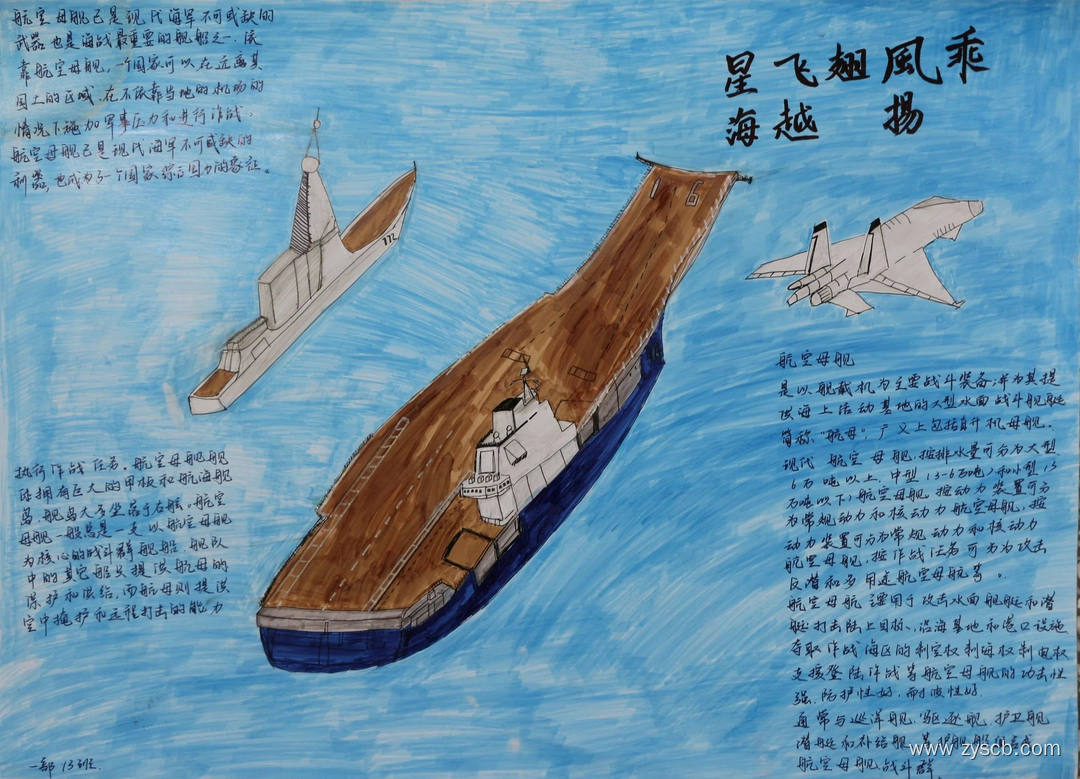 航空母舰已是现代海军不可或缺的
武器也是海战最重要的舰船之一.依
靠航空母舰,一个国家可以在远离其
国土的区域.在不依靠当地的机场的
情况下施加军事压力和进行作战.
航空母舰已是现代海军不可或缺的
利器,也成为了一个国家综合国力的象征。
乘風翅飞星
揚越海
16
112
执行作战任务。航空母舰舰
体拥有巨大的甲板和航海舰
岛.舰岛大多坐落于右舷。航空
母舰一般总是一支以航空母舰
为核心的战斗群舰船.舰队
中的其它船只提供航母的
保护和供给,而航母则提供
空中掩护和远程打击的能力
一部13班.
航空母舰
是以舰载机为主要战斗装备;并为其提
供海上活动基地的大型水面战斗舰艇
简称"航母";广义上包括直升机母舰.
现代航空母舰.按排水量可分为大型
6万吨以上.中型(3-6万吨)和小型(3
万吨以下)航空母舰.按动力装置可分
为常规动力和核动力航空母舰,按
动力装置可分为常规动力和核动力
航空母舰.按作战任务可分为攻击
反潜和多用途航空母航等。
航空母航主要用于攻击水面舰艇和潜
艇打击陆上目标、沿海基地和港口设施
夺取作战海区的制空权制海权制电权
支援登陆作战等航空母舰的攻击性
强.防护性好,耐波性好.
通常与巡洋舰.驱逐舰.护卫舰
潜艇和补给舰
航空母舰战斗群.
www.zyscb.com